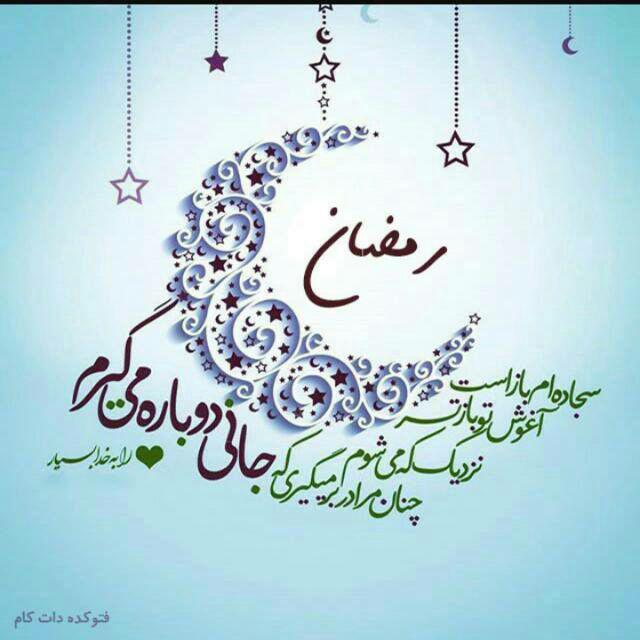 رمضان
سجاده ام باز است
آغوش تو باز تر
نزدیک که می شوم
چنان مرا در بر میگیری که
جانی دوباره می گیرم
را به خدا بسپار
فتوکده دات کام